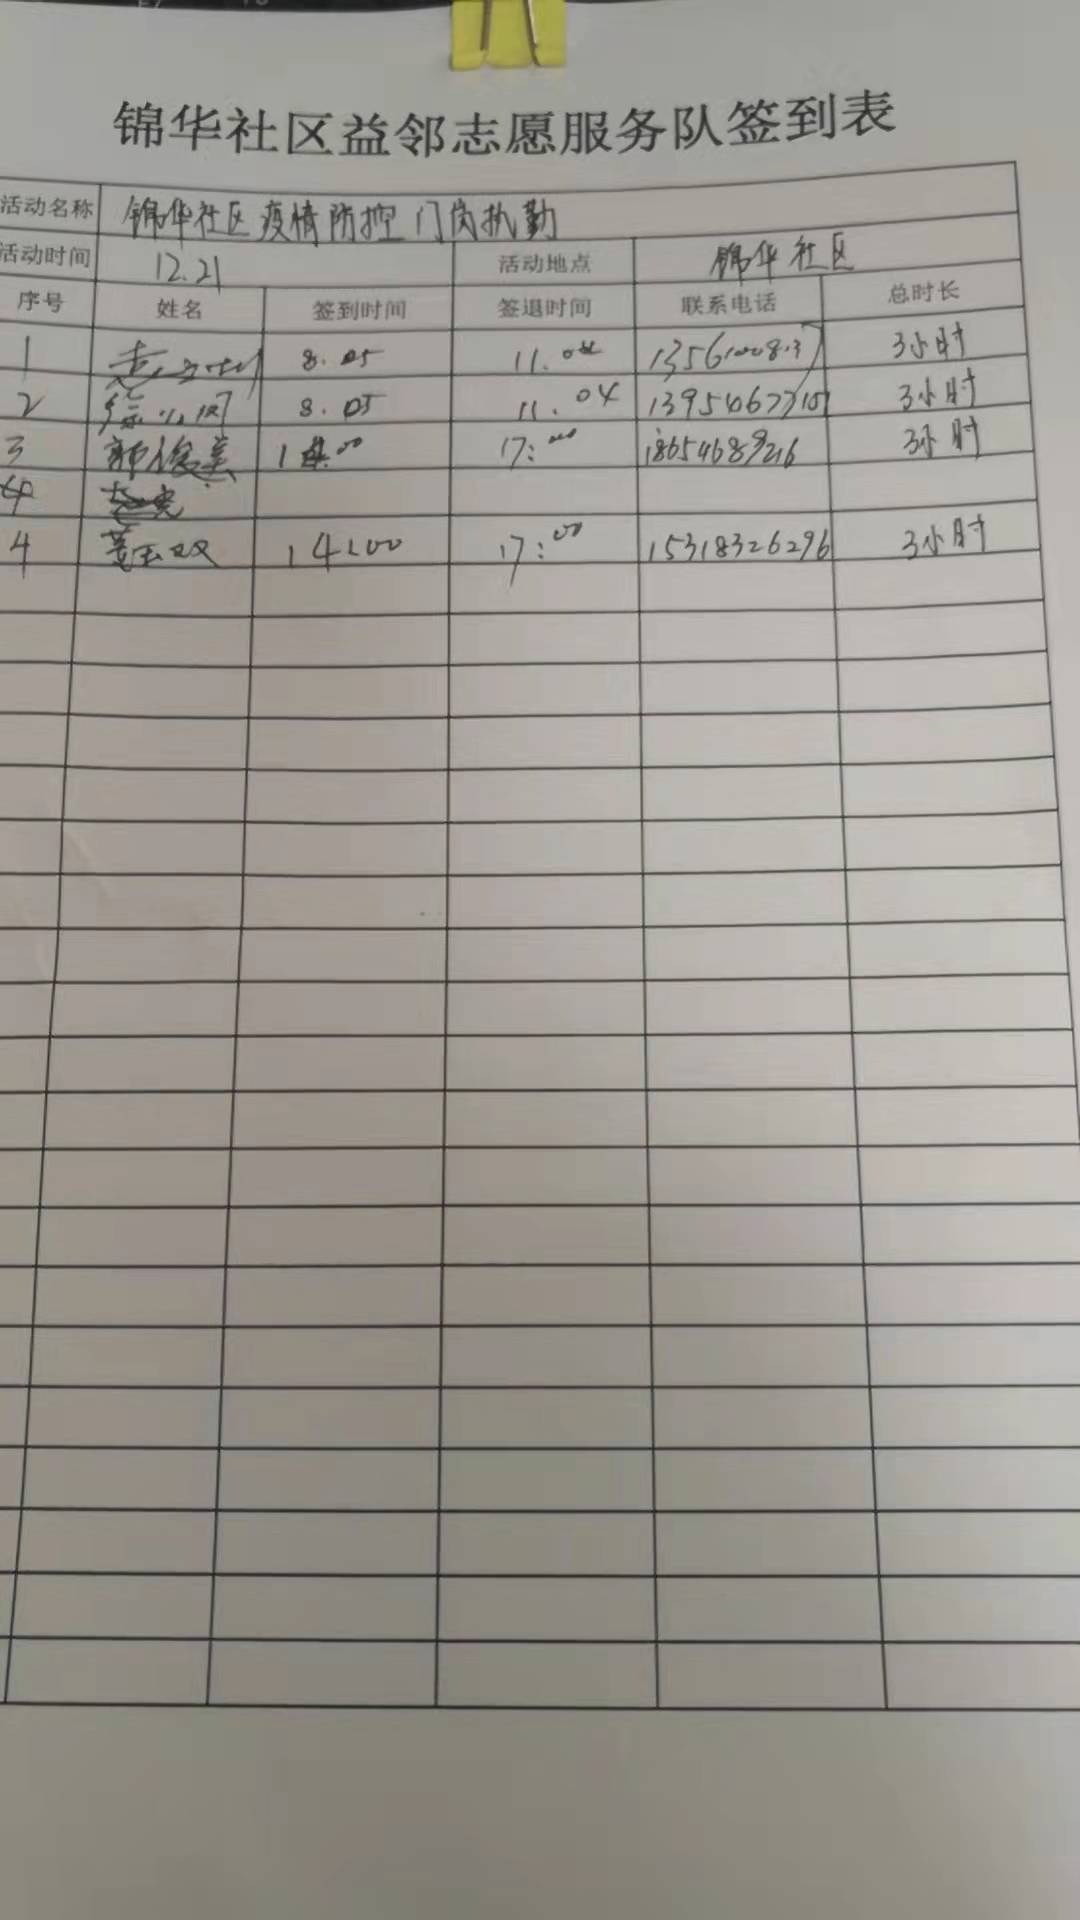 锦华社区益邻志愿服务队签到表
活动名称 锦华社区疫情防控门岗执勤
活动时间 12.21 活动地点 锦华社区
序号 姓名 签到时间 签退时间 联系电话 总时长
1 8.05 11.04 3小时
2 8.05 11.04 3小时
3 郭俊美 17:00 18654689216 3小时
4
4 姜玉双 14:00 17:00 15318326296 3小时